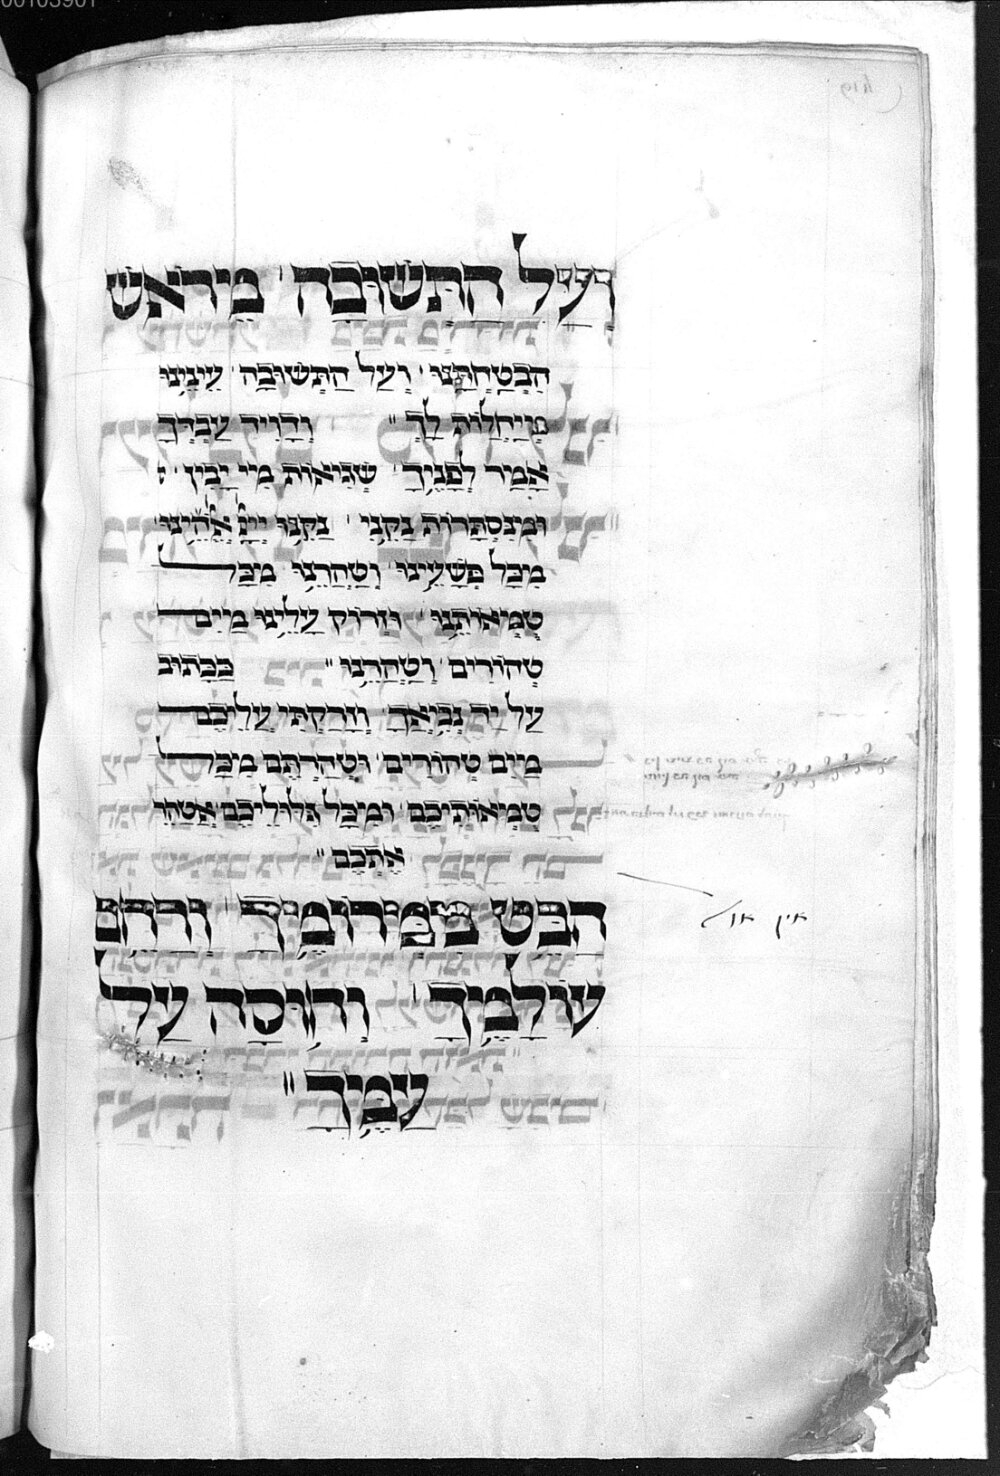 וְעַל הַתְּשׁוּבָה מֵרֹאשׁ
הִבְטַחְתָּנוּ וְעַל הַתְּשׁוּבָה עֵינֵינוּ
מְיַחֲלוֹת לָךְ׃ וְדָוִיד עַבְדְּךָ
אָמַר לְפָנֶיךָ שְׁגִיאוֹת מִי יָבִין
וּמִנִּסְתָּרוֹת נַקֵּנִי נַקֵּנוּ יְיָ אֱלֹהֵינוּ
מִכָּל פְּשָׁעֵינוּ וְטַהֲרֵנוּ מִכָּל
טֻמְאוֹתֵינוּ וּזְרוֹק עָלֵינוּ מַיִם
טְהוֹרִים וְטַהֲרֵנוּ׃ כַּכָּתוּב
עַל יַד נְבִיאֶךָ וְזָרַקְתִּי עֲלֵיכֶם
מַיִם טְהוֹרִים וּטְהַרְתֶּם מִכָּל
טֻמְאוֹתֵיכֶם וּמִכָּל גִּלּוּלֵיכֶם אֲטַהֵר
אֶתְכֶם׃
הַבֵּט מִמְּרוֹמֶיךָ וְרַחֵם
עוֹלָמֶיךָ וְחוּסָה עַל
עַמֶּיךָ׃
אין